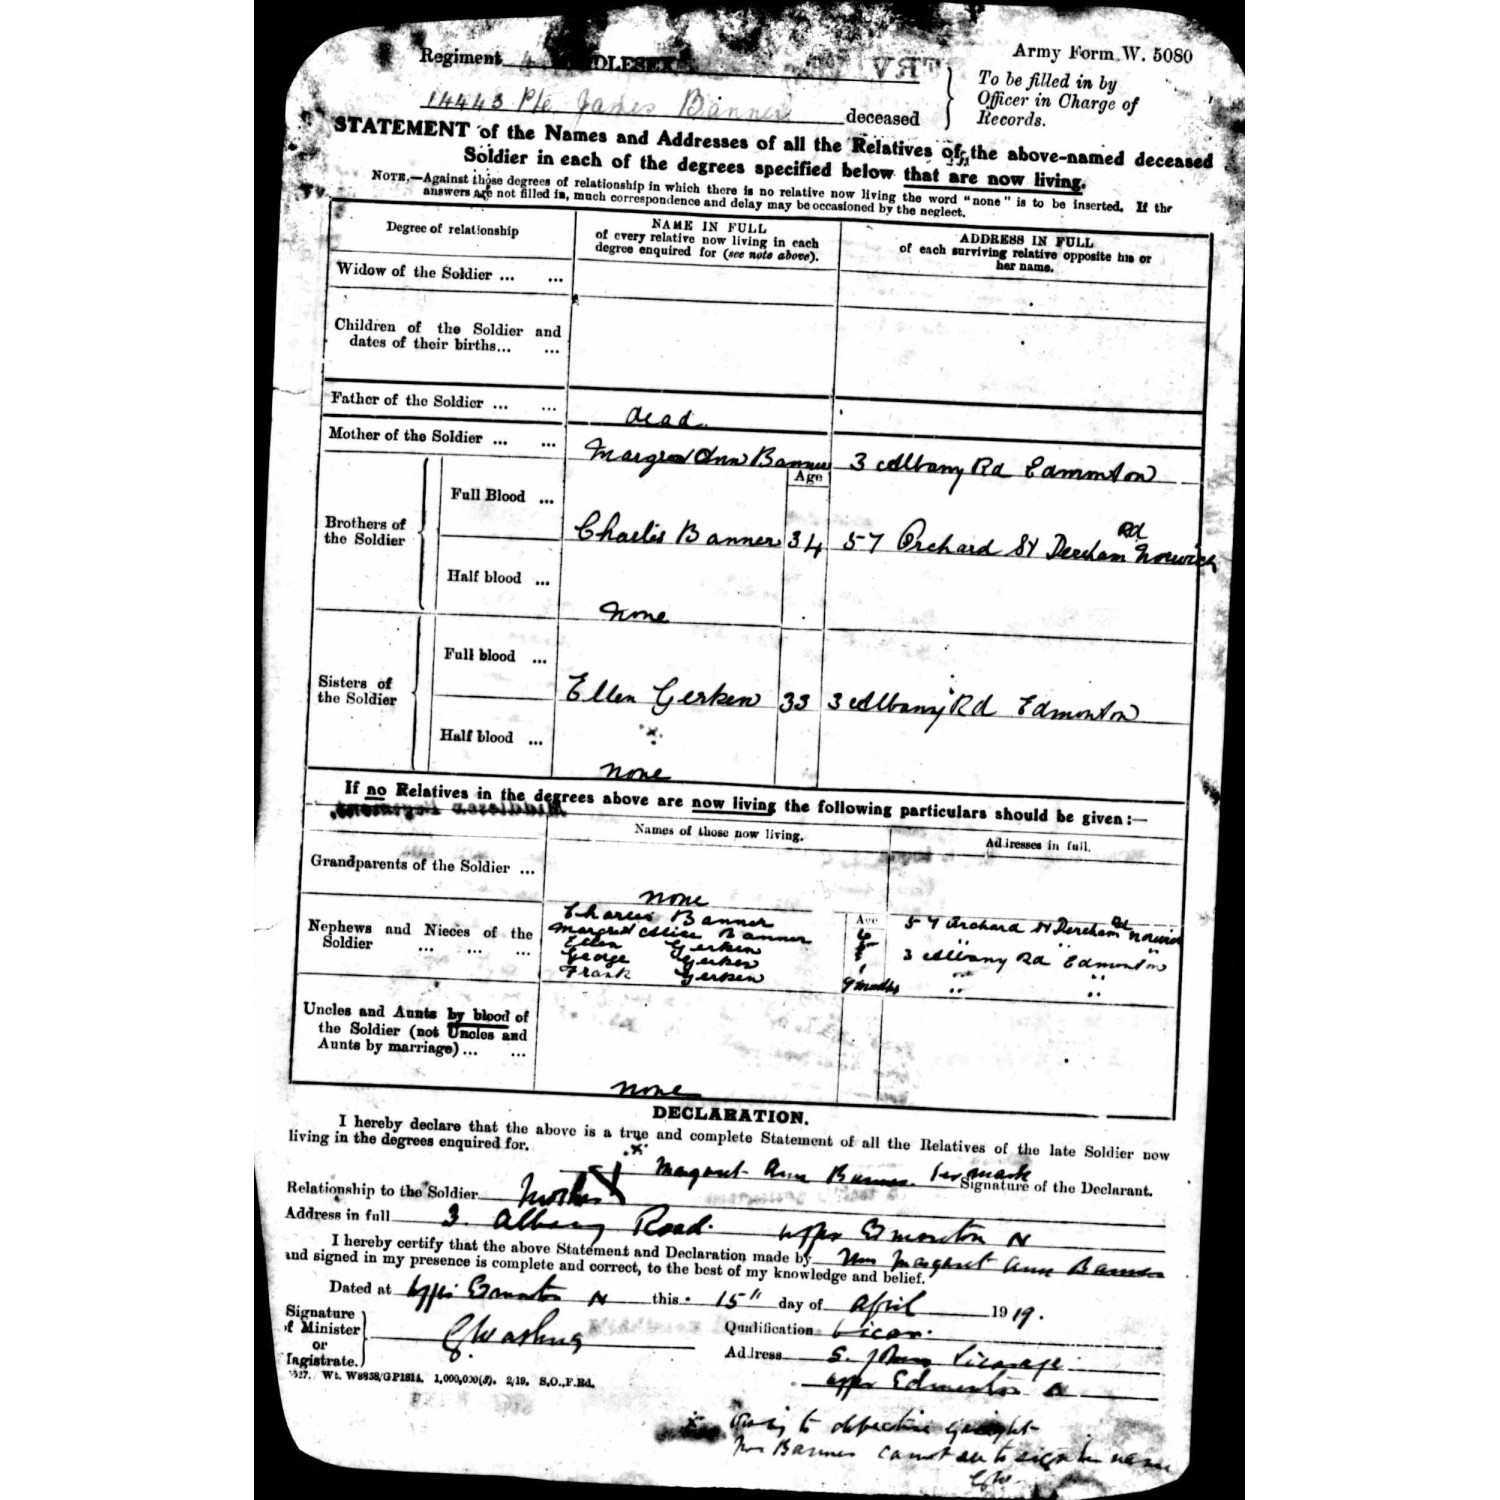 Army Form W. 5080
Regiment MIDDLESEX
To be filled in by
Officer in Charge of
Records.
14443 Pte James Banner deceased
STATEMENT of the Names and Addresses of all the Relatives of the above-named deceased
Soldier in each of the degrees specified below that are now living.
NOTE.—Against those degrees of relationship in which there is no relative now living the word "none" is to be inserted. If the
answers are not filled in, much correspondence and delay may be occasioned by the neglect.
Degree of relationship
NAME IN FULL
of every relative now living in each
degree enquired for (see note above).
ADDRESS IN FULL
of each surviving relative opposite his or
her name.
Widow of the Soldier ... ...
Children of the Soldier and
dates of their births... ...
Father of the Soldier ... ... dead
Mother of the Soldier ... ... Margret Ann Banner 3 Albany Rd Edmonton
Age
Brothers of
the Soldier
Full Blood ... Charlis Banner 34 57 Orchard St Dereham Rd Norwich
Half blood ... None
Sisters of
the Soldier
Full blood ... Ellen Gerken 33 3 Albany Rd Edmonton
Half blood ... none
If no Relatives in the degrees above are now living the following particulars should be given:—
Names of those now living.
Addresses in full.
Grandparents of the Soldier ... none
Nephews and Nieces of the
Soldier ... ... ...
Age
Charlis Banner 6 57 Orchard St Dereham Rd Norwich
Margret Alice Banner " "
Ellen Gerken 3 Albany Rd Edmonton
George Gerken 1 " "
Frank Gerken 9 months " "
Uncles and Aunts by blood of
the Soldier (not Uncles and
Aunts by marriage) ... ...
none
DECLARATION.
I hereby declare that the above is a true and complete Statement of all the Relatives of the late Soldier now
living in the degrees enquired for.
x Margaret Ann Banner. her mark
Signature of the Declarant.
Relationship to the Soldier Mother X
Address in full 3. Albany Road. Upper Edmonton N
I hereby certify that the above Statement and Declaration made by Mrs Margaret Ann Banner
and signed in my presence is complete and correct, to the best of my knowledge and belief.
Dated at Upper Edmonton N this 15" day of April 1919.
Signature
of Minister
or
Magistrate.
Qualification Vicar.
Address S. Johns Vicarage
Upper Edmonton N
527. Wt. W8858/GP1814. 1,000,000(8). 2/19. S.O.,F.Rd.
x Owing to defective eyesight
Mrs Banner cannot see to sign her name